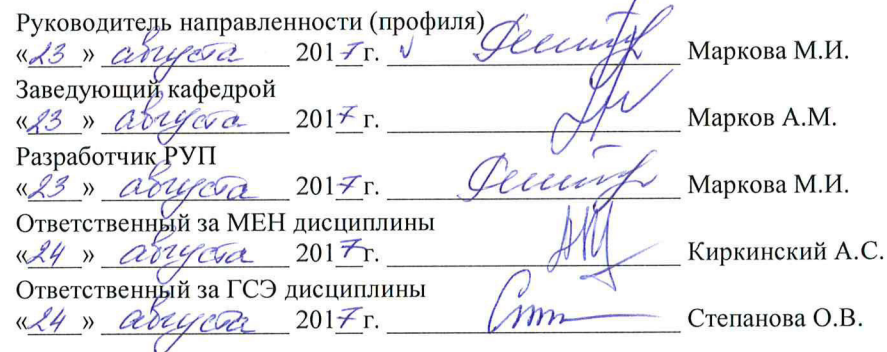 Руководитель направленности (профиля)
«23» августа 2017 г. Маркова М.И.
Заведующий кафедрой
«23» августа 2017 г. Марков А.М.
Разработчик РУП
«23» августа 2017 г. Маркова М.И.
Ответственный за МЕН дисциплины
«24» августа 2017 г. Киркинский А.С.
Ответственный за ГСЭ дисциплины
«24» августа 2017 г. Степанова О.В.